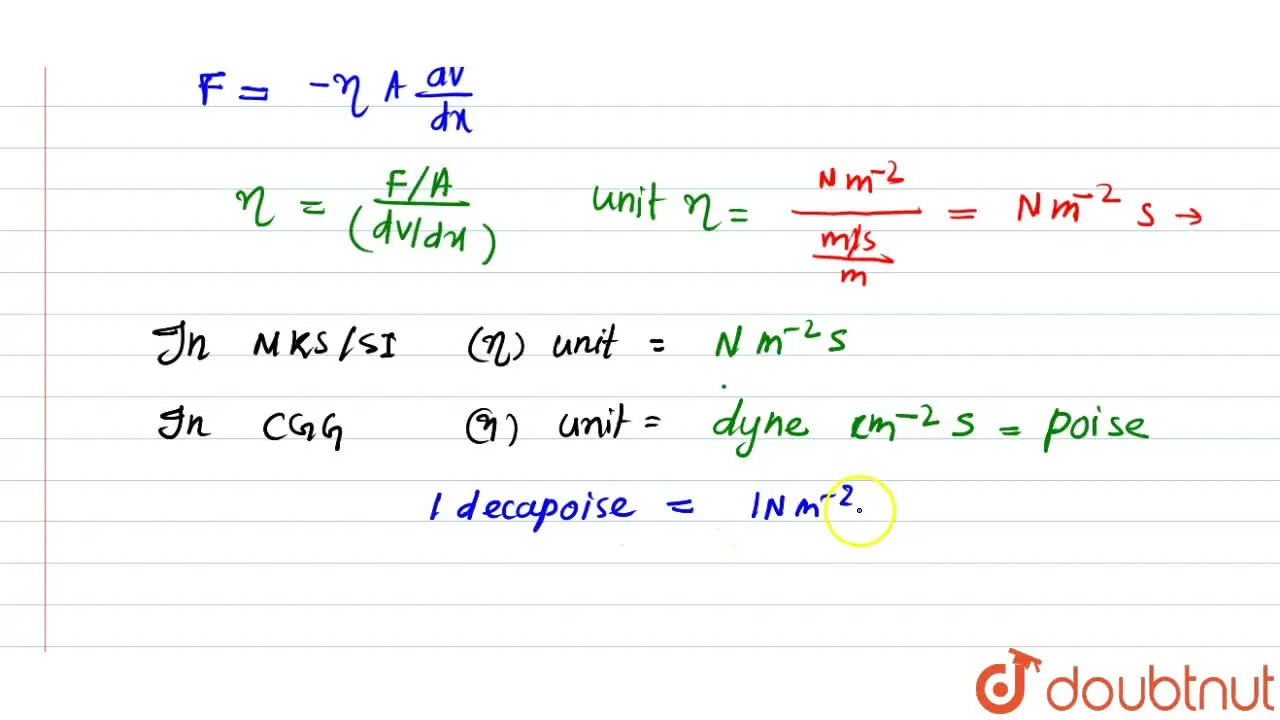 F = -η A dv/dx
η = F/A / (dv/dx) unit η = N m⁻² / (m/s / m) = N m⁻² s →
In MKS/SI (η) unit = N m⁻² s
In CGG (η) unit = dyne cm⁻² s = poise
1 decapoise = 1N m⁻².
doubtnut